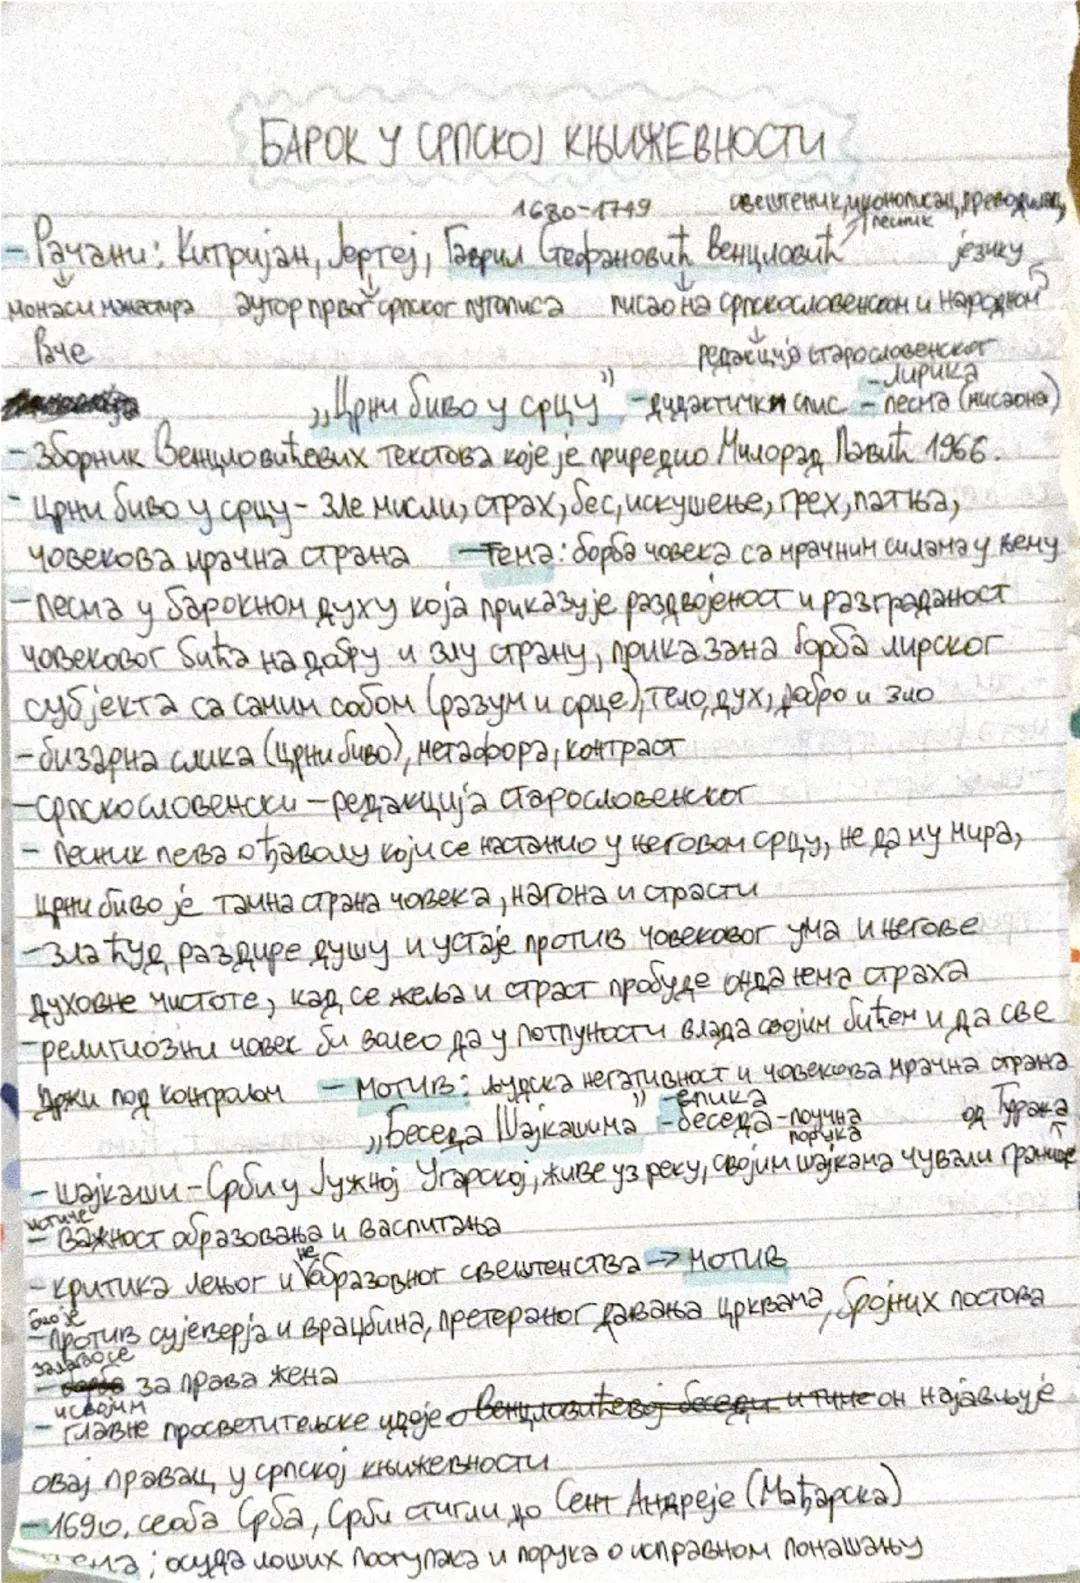 БАРОК У СРПСКОЈ КЊИЖЕВНОСТИ
1680-1749 свештеник, иконописац, преводилац, песник
- Рачани: Китријан, Јертеј, Гаврил Стефановић Венцловић језику
монаси манастира аутор првог српског путописа писао на српскословенском и народном
Раче редакција старословенског
- лирика
„Црни биво у срцу” - дидактички спис - песма (мисаона)
- Зборник Венцловићевих текстова које је приредио Милорад Павић 1966.
- Црни биво у срцу - зле мисли, страх, бес, искушење, грех, патња,
човекова мрачна страна - Тема: борба човека са мрачним силама у њему
- песма у барокном духу која приказује раздвојеност и разграданост
човековог бића на добру и злу страну, приказана борба лирског
субјекта са самим собом (разум и срце), тело, дух, добро и зло
- бизарна слика (црни биво), метафора, контраст
- српскословенски - редакција старословенског
- Песник пева о ђаволу који се настанио у његовом срцу, не да му мира,
црни биво је тамна страна човека, нагона и страсти
- Зла ћуд раздире душу и устаје против човековог ума и његове
духовне чистоте, кад се жеља и страст пробуде онда нема страха
- религиозни човек би волео да у потпуности влада својим бићем и да све
држи под контролом - мотив: људска негативност и човекова мрачна страна
- епика
„Беседа Шајкашима” - беседа - поучна порука од Турака
- шајкаши - Срби у Јужној Угарској, живе уз реку, својим шајкама чували границе
истиче
- важност образовања и васпитања
- критика лењог и необразовног свештенства → мотив
био је
- против сујеверја и врацбина, претераног давања црквама, бројних постова
залагао се
- борба за права жена
и својим
- главне просветитељске идеје о Венцловићевој беседи и тиме он најављује
овај правац у српској књижевности
- 1690. сеоба Срба, Срби стигли до Сент Андреје (Мађарска)
тема: осуда лоших поступака и порука о исправном понашању